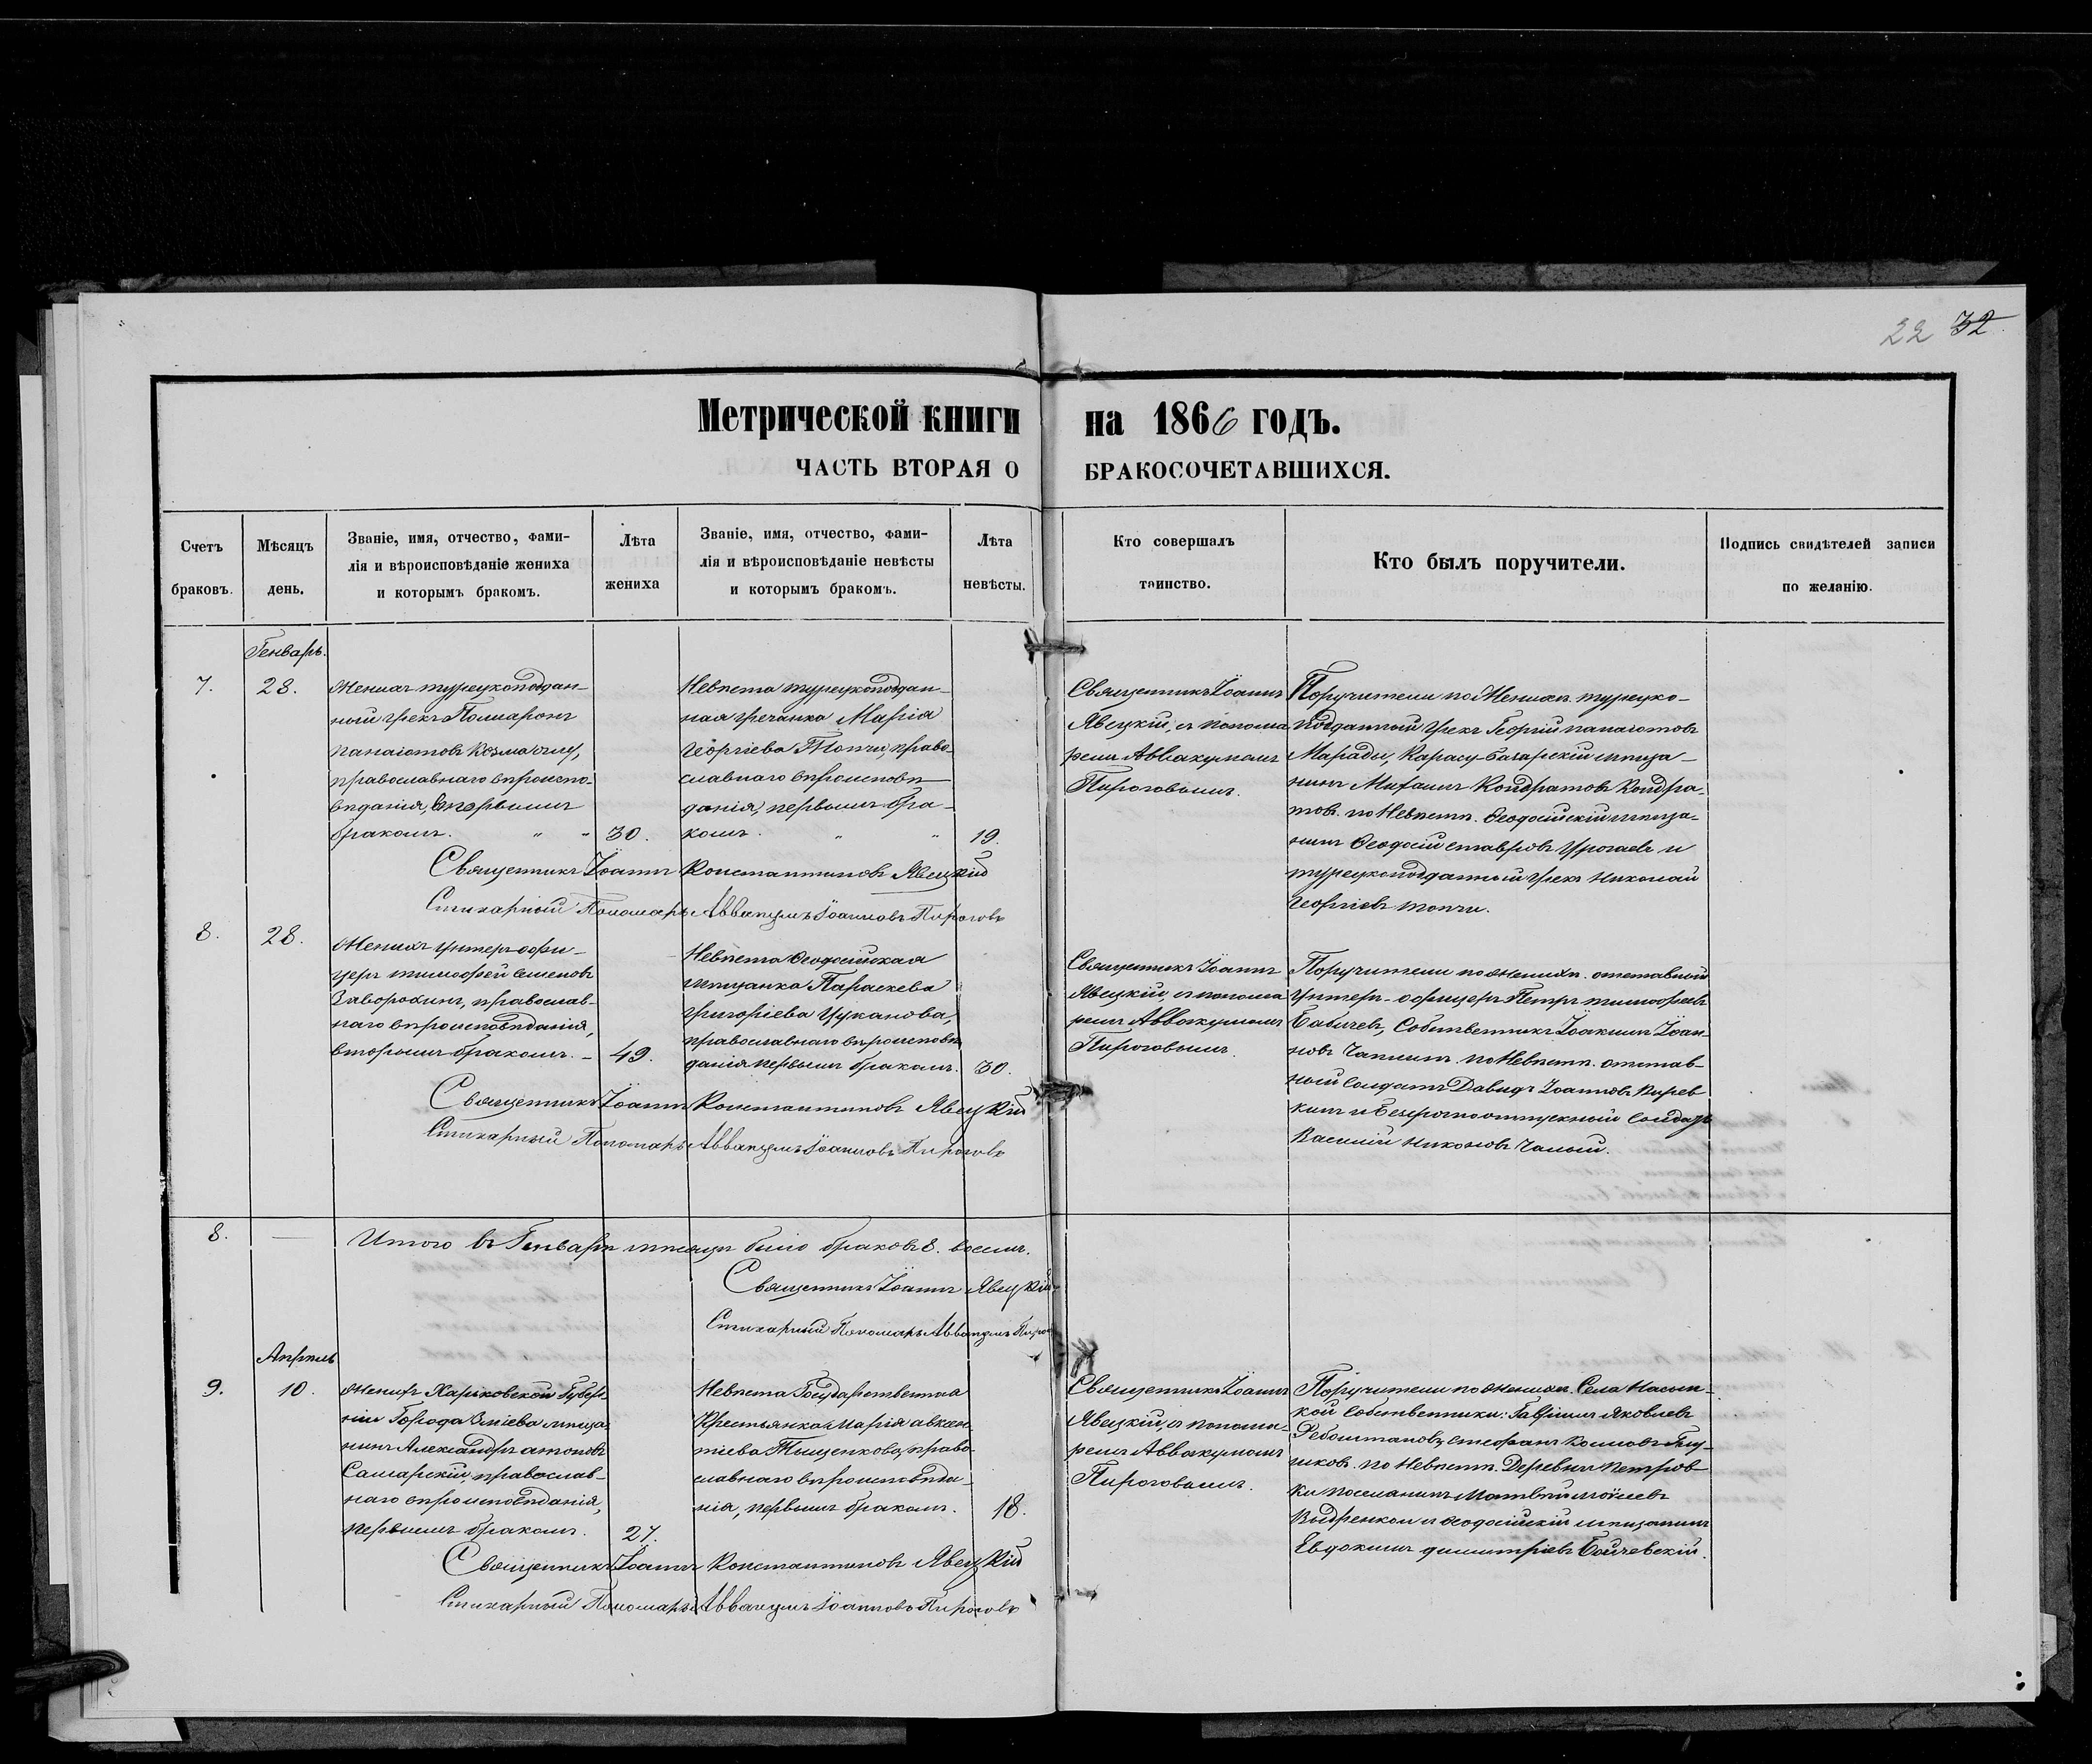 22 32
Метрической книги на 1866 годъ.
ЧАСТЬ ВТОРАЯ О БРАКОСОЧЕТАВШИХСЯ.
Счетъ браковъ.
Мѣсяцъ день.
Званіе, имя, отчество, фами-
лія и вѣроисповѣданіе жениха
и которымъ бракомъ.
Лѣта жениха
Званіе, имя, отчество, фами-
лія и вѣроисповѣданіе невѣсты
и которымъ бракомъ.
Лѣта невѣсты.
Кто совершалъ
таинство.
Кто былъ поручители.
Подпись свидѣтелей записи
по желанію.
Генварь.
7.
28.
Женихъ турецкоподдан-
ный грекъ
панаіотовъ
православнаго вѣроиспо-
вѣданія, первымъ
бракомъ. " "
30.
Невѣста турецкоподдан-
ная гречанка Марія
Георгіева Топчи, право-
славнаго вѣроисповѣ-
данія, первымъ бра-
комъ. " "
19.
Священникъ Іоаннъ
Явецкій, съ понома-
ремъ Аввакумомъ
Пироговымъ.
Поручители по Женихѣ. турецко-
подданный грекъ Георгій панаіотовъ
Карасу-базарскій мѣща-
нинъ Кондратовъ Кондра-
товъ. по Невѣстѣ. Ѳеодосійскій мѣща-
нинъ Ѳеодосій ставровъ и
турецкоподданный грекъ Николай
Георгіевъ топчи.
Священникъ Іоаннъ Константиновъ Явецкій
Стихарный Пономарь Аввакумъ Іоанновъ Пироговъ
8.
28.
Женихъ Унтеръ-офи-
церъ тимофей семеновъ
Заворохинъ, православ-
наго вѣроисповѣданія,
вторымъ бракомъ. -
49.
Невѣста Ѳеодосійская
мѣщанка Параскева
григоріева Цуканова,
православнаго вѣроисповѣ-
данія первымъ бракомъ.
30.
Священникъ Іоаннъ
Явецкій, съ понома-
ремъ Аввакумомъ
Пироговымъ.
Поручители по женихѣ. отставный
Унтеръ-офицеръ Петръ тимофеевъ
Бабичевъ, Собственникъ Іоакимъ Іоан-
новъ Чаплинъ. по Невѣстѣ. отстав-
ной Солдатъ Давидъ Іоанновъ
и безсрочноотпускный Солдатъ
Василій никоновъ Чалый.
Священникъ Іоаннъ Константиновъ Явецкій
Стихарный Пономарь Аввакумъ Іоанновъ Пироговъ
8.
Итого въ Генварѣ мѣсяцѣ было браковъ 8. восемь.
Священникъ Іоаннъ Явецкій
Стихарный Пономарь Аввакумъ
Апрѣль
9.
10.
Женихъ Харьковской Губер-
ніи Города Зміева мѣща-
нинъ Александръ антоновъ
Самарскій, православ-
наго вѣроисповѣданія,
первымъ бракомъ.
27.
Невѣста Государственная
Крестьянка Марія авксен-
тіева Тыщенкова, право-
славнаго вѣроисповѣда-
нія, первымъ бракомъ.
18.
Священникъ Іоаннъ
Явецкій, съ понома-
ремъ Аввакумомъ
Пироговымъ.
Поручители по женихѣ. Села Насып-
кой Собственники: Гавріилъ Яковлевъ
стефанъ
по Невѣстѣ. Деревни Петров-
ки поселянинъ
и Ѳеодосійскій мѣщанинъ
Евдокимъ димитріевъ
Священникъ Іоаннъ Константиновъ Явецкій
Стихарный Пономарь Аввакумъ Іоанновъ Пироговъ